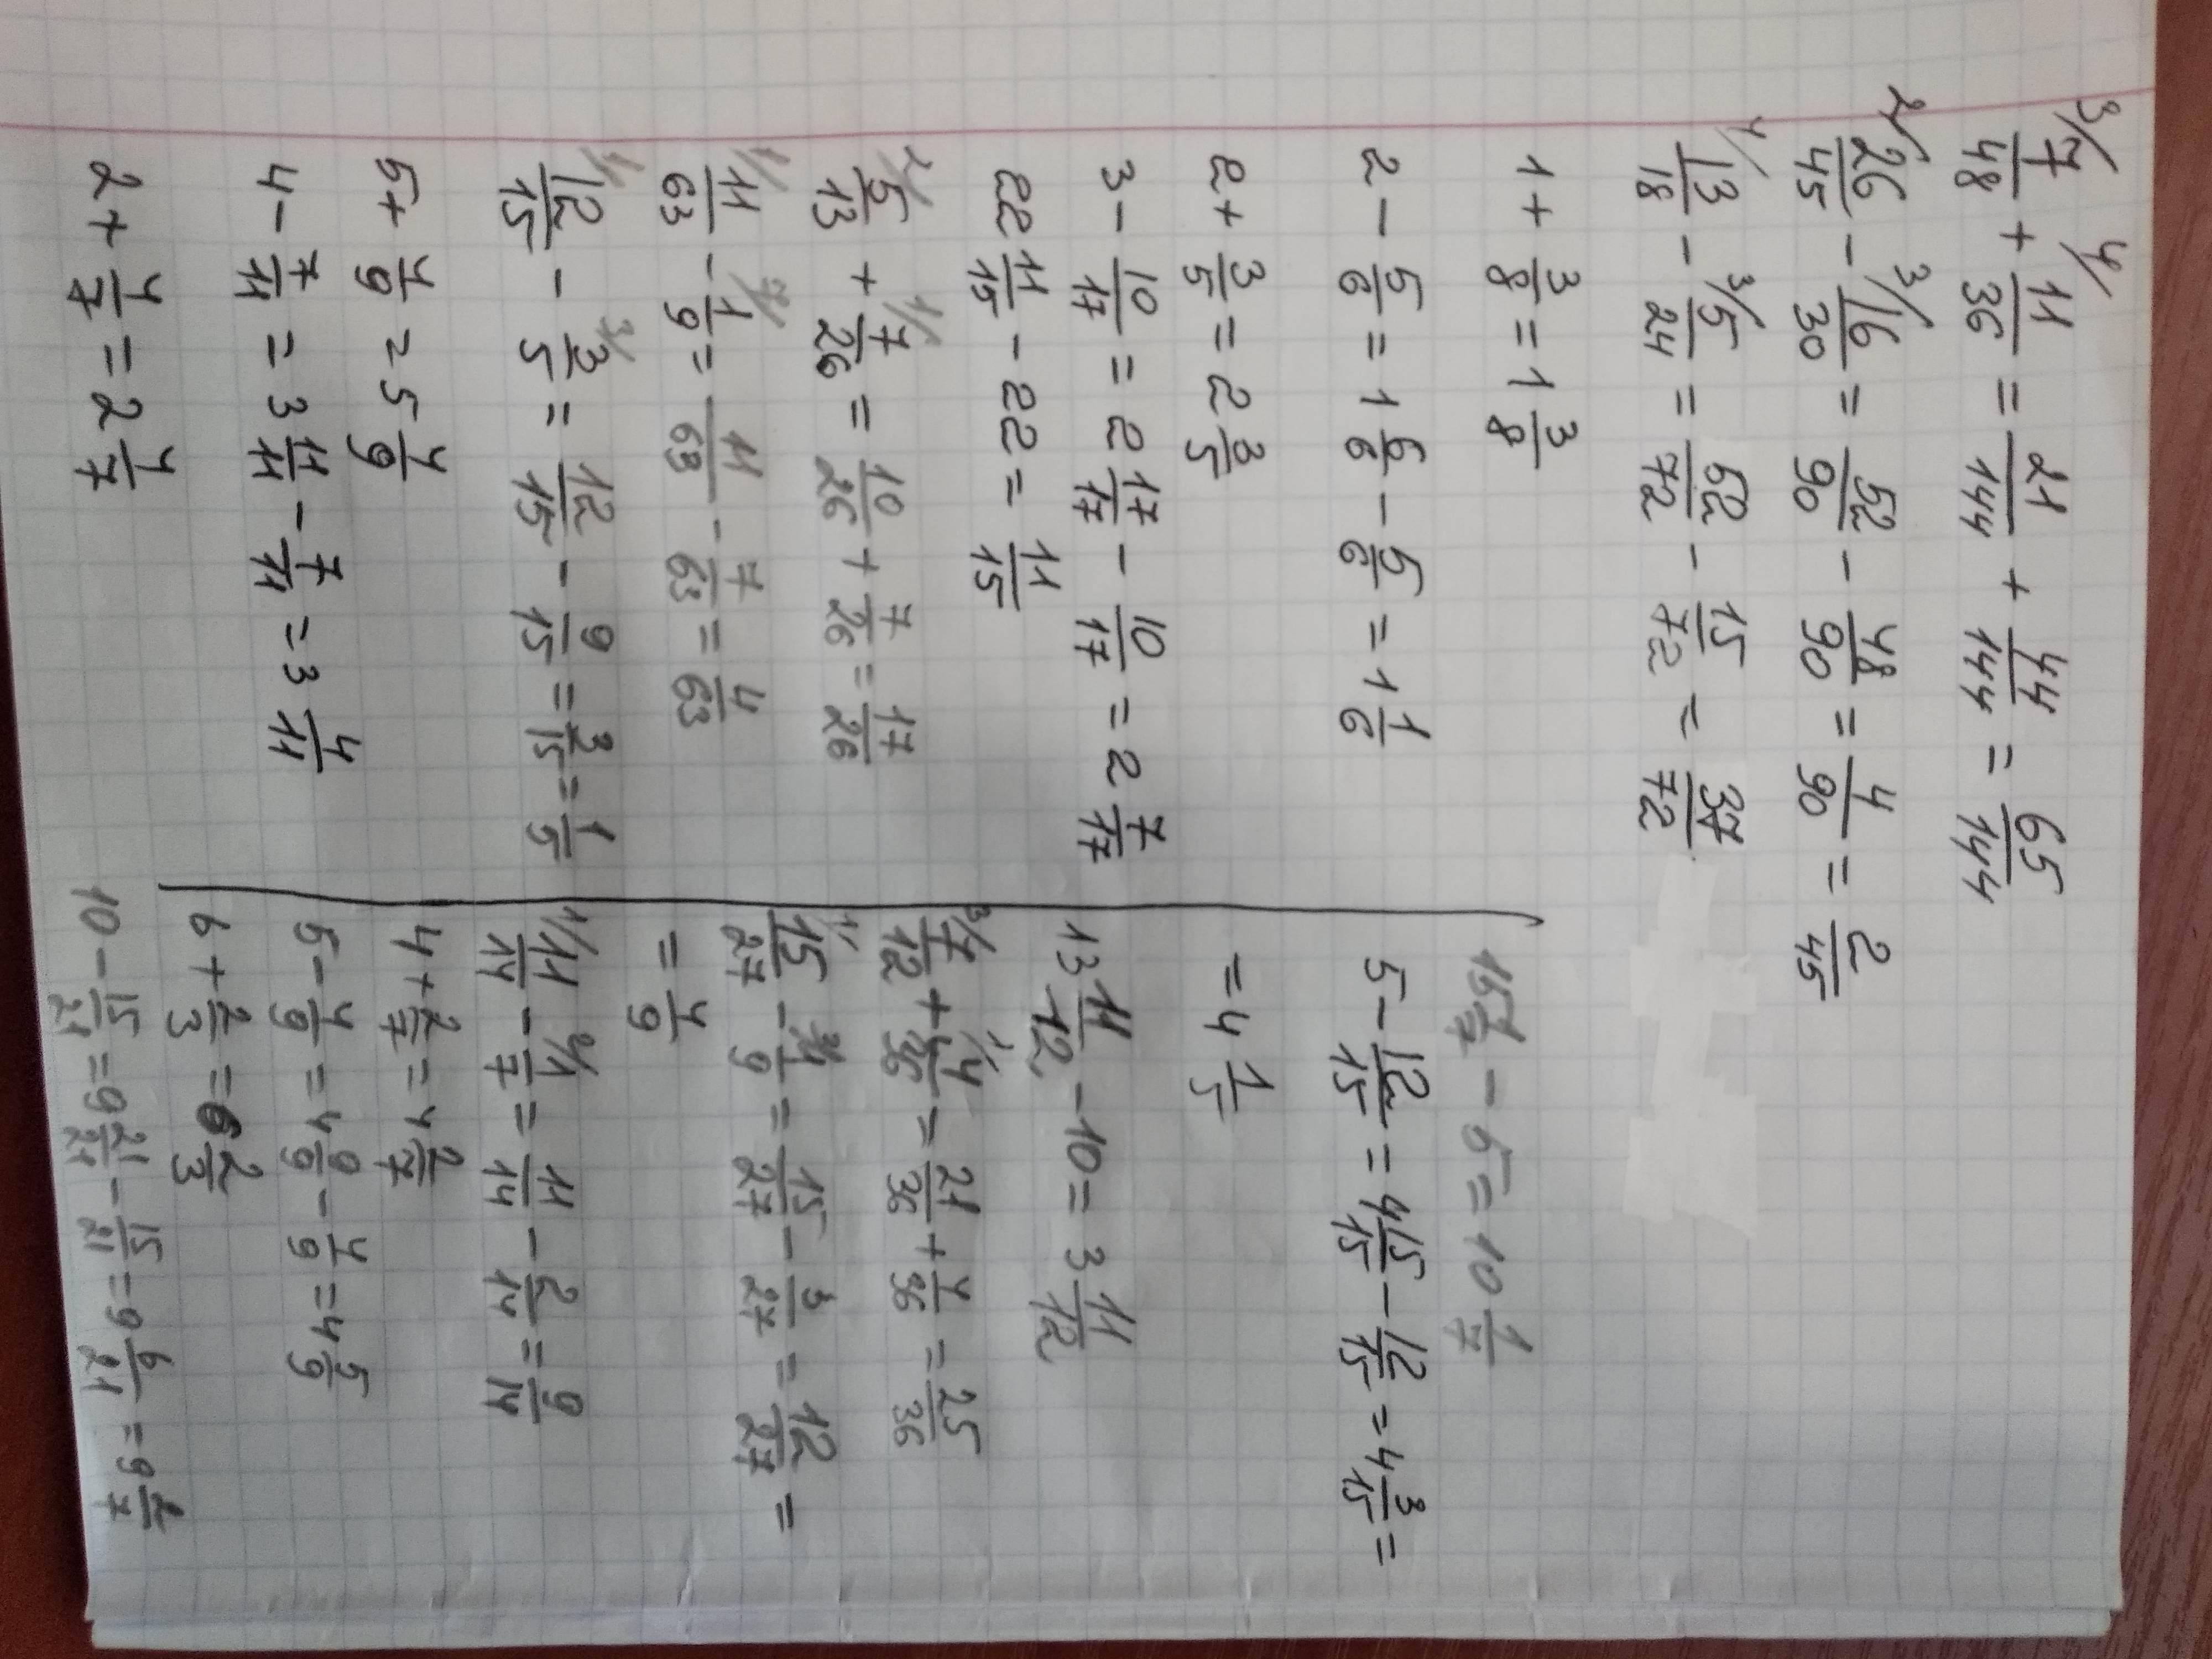 3/ 7/48 + 4/ 11/36 = 21/144 + 44/144 = 65/144
2/ 26/45 - 3/ 16/30 = 52/90 - 48/90 = 4/90 = 2/45
4/ 13/18 - 3/ 5/24 = 52/72 - 15/72 = 37/72
1 + 3/8 = 1 3/8
2 - 5/6 = 1 6/6 - 5/6 = 1 1/6
2 + 3/5 = 2 3/5
3 - 10/17 = 2 17/17 - 10/17 = 2 7/17
22 11/15 - 22 = 11/15
2/ 5/13 + 1/ 7/26 = 10/26 + 7/26 = 17/26
1/ 11/63 - 7/ 1/9 = 11/63 - 7/63 = 4/63
1/ 12/15 - 3/ 3/5 = 12/15 - 9/15 = 3/15 = 1/5
5 + 4/9 = 5 4/9
4 - 7/11 = 3 11/11 - 7/11 = 3 4/11
2 + 4/7 = 2 4/7
15 1/7 - 5 = 10 1/7
5 - 12/15 = 4 15/15 - 12/15 = 4 3/15 =
= 4 1/5
13 11/12 - 10 = 3 11/12
3/ 7/12 + 1/ 4/36 = 21/36 + 4/36 = 25/36
1/ 15/27 - 3/ 1/9 = 15/27 - 3/27 = 12/27 =
= 4/9
1/ 11/14 - 2/ 1/7 = 11/14 - 2/14 = 9/14
4 + 2/7 = 4 2/7
5 - 4/9 = 4 9/9 - 4/9 = 4 5/9
6 + 2/3 = 6 2/3
10 - 15/21 = 9 21/21 - 15/21 = 9 6/21 = 9 2/7